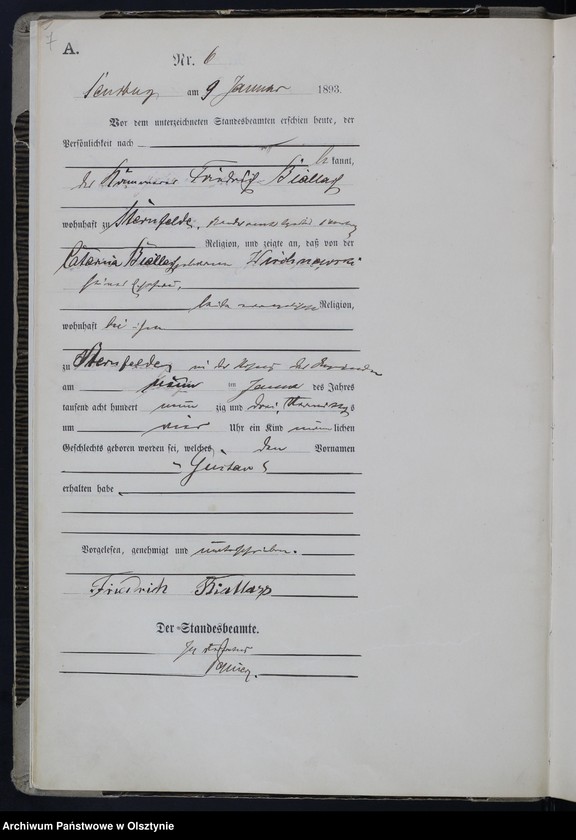 7
A.
Nr. 6
am 9 Januar 1893.
Vor dem unterzeichneten Standesbeamten erschien heute, der
Persönlichkeit nach
kannt,
der Kämmerer Friedrich Biallas
wohnhaft zu Sternfelde,
Religion, und zeigte an, daß von der
Biallas geborenen
seiner Ehefrau,
beide evangelischer Religion,
wohnhaft bei ihm
zu Sternfelde, in der
am neun im Januar des Jahres
tausend acht hundert neun zig und drei, Vormittags
um vier Uhr ein Kind männlichen
Geschlechts geboren worden sei, welches den Vornamen
Gustav
erhalten habe
Vorgelesen, genehmigt und unterschrieben.
Friedrich Biallass
Der Standesbeamte.
Archiwum Państwowe w Olsztynie